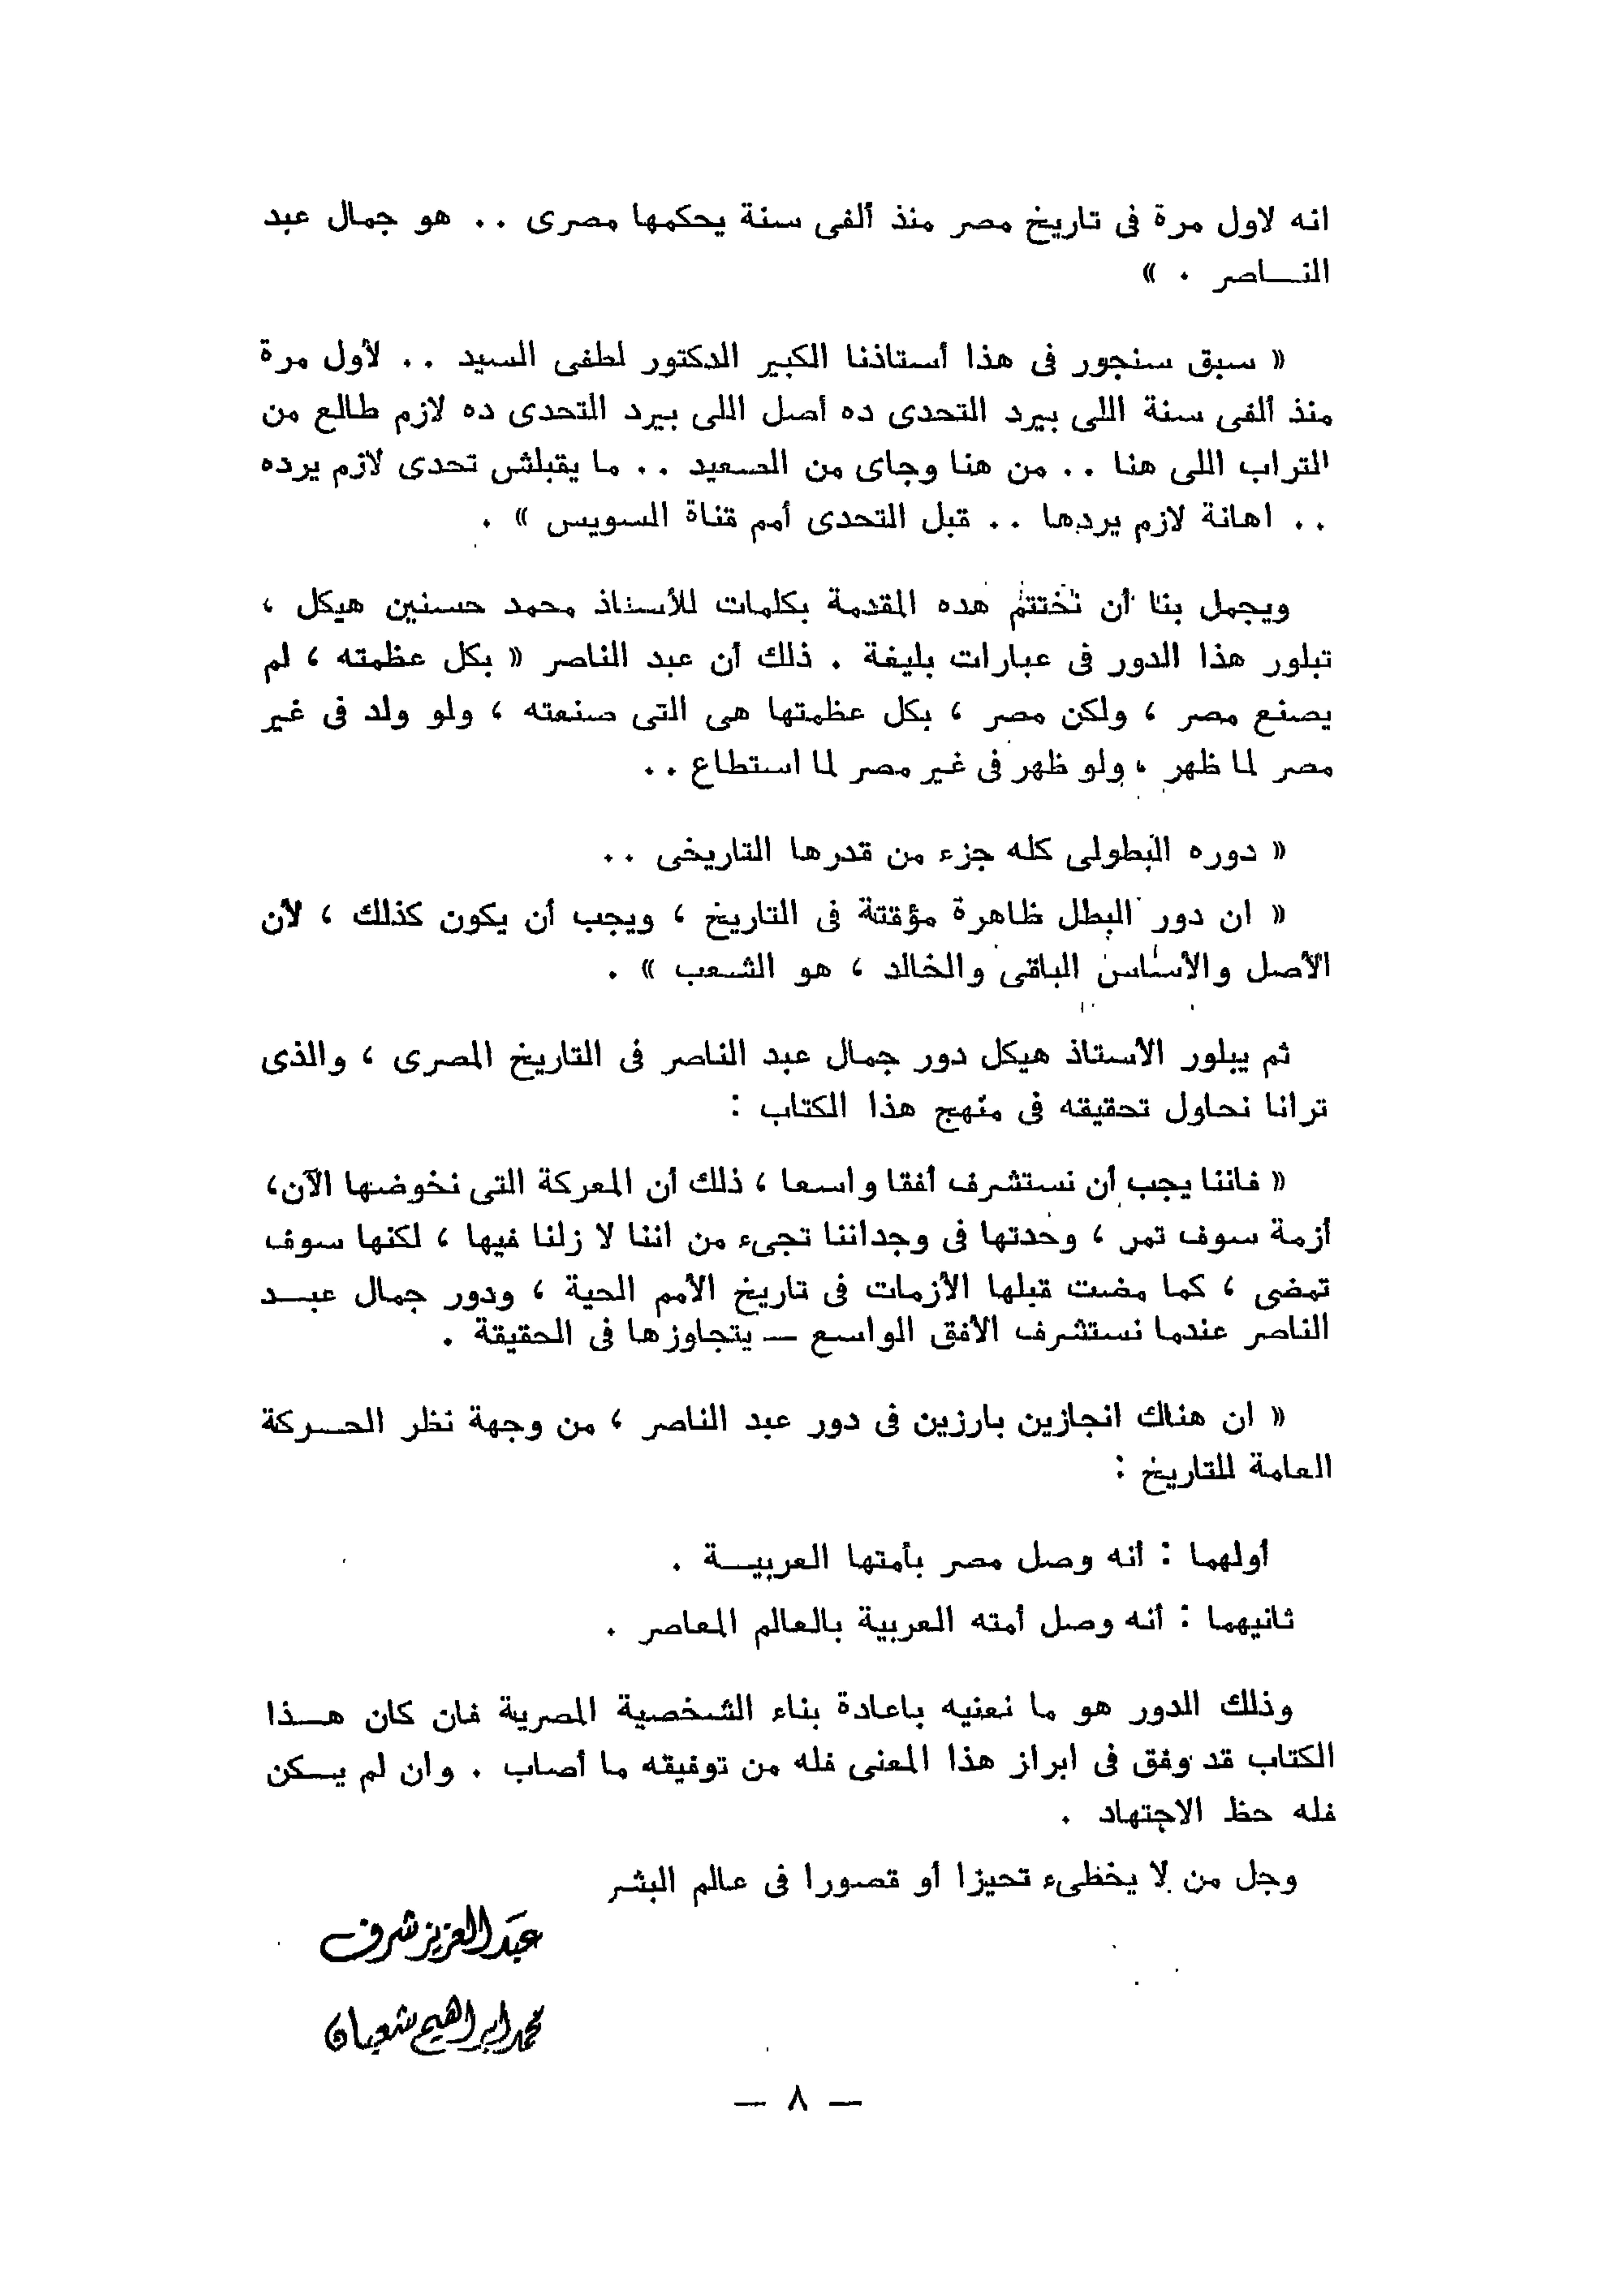 انه لاول مرة فى تاريخ مصر منذ ألفى سنة يحكمها مصرى .. هو جمال عبد
النــاصر . »
« سبق سنجور فى هذا أستاذنا الكبير الدكتور لطفى السيد .. لأول مرة
منذ ألفى سنة اللى بيرد التحدى ده أصل اللى بيرد التحدى ده لازم طالع من
التراب اللى هنا .. من هنا وجاى من الصعيد .. ما يقبلش تحدى لازم يرده
.. اهانة لازم يردها .. قبل التحدى أمم قناة السويس » .
ويجمل بنا أن نختتم هده المقدمة بكلمات للأستاذ محمد حسنين هيكل ،
تبلور هذا الدور فى عبارات بليغة . ذلك أن عبد الناصر « بكل عظمته ، لم
يصنع مصر ، ولكن مصر ، بكل عظمتها هى التى صنعته ، ولو ولد فى غير
مصر لما ظهر ، ولو ظهر فى غير مصر لما استطاع ..
« دوره البطولى كله جزء من قدرها التاريخى ..
« ان دور البطل ظاهرة مؤقتة فى التاريخ ، ويجب أن يكون كذلك ، لأن
الأصل والأساس الباقى والخالد ، هو الشعب » .
ثم يبلور الأستاذ هيكل دور جمال عبد الناصر فى التاريخ المصرى ، والذى
ترانا نحاول تحقيقه فى منهج هذا الكتاب :
« فاننا يجب أن نستشرف أفقا واسعا ، ذلك أن المعركة التى نخوضها الآن،
أزمة سوف تمر ، وحدتها فى وجداننا تجىء من اننا لا زلنا فيها ، لكنها سوف
تمضى ، كما مضت قبلها الأزمات فى تاريخ الأمم الحية ، ودور جمال عبــد
الناصر عندما نستشرف الأفق الواسع — يتجاوزها فى الحقيقة .
« ان هناك انجازين بارزين فى دور عبد الناصر ، من وجهة نظر الحــركة
العامة للتاريخ :
أولهما : أنه وصل مصر بأمتها العربيــة .
ثانيهما : أنه وصل أمته العربية بالعالم المعاصر .
وذلك الدور هو ما نعنيه باعادة بناء الشخصية المصرية فان كان هــذا
الكتاب قد وفق فى ابراز هذا المعنى فله من توفيقه ما أصاب . وان لم يــكن
فله حظ الاجتهاد .
وجل من لا يخطىء تحيزا أو قصورا فى عالم البشر
عبد العزيز شرف
محمد ابراهيم شعبان
— ٨ —